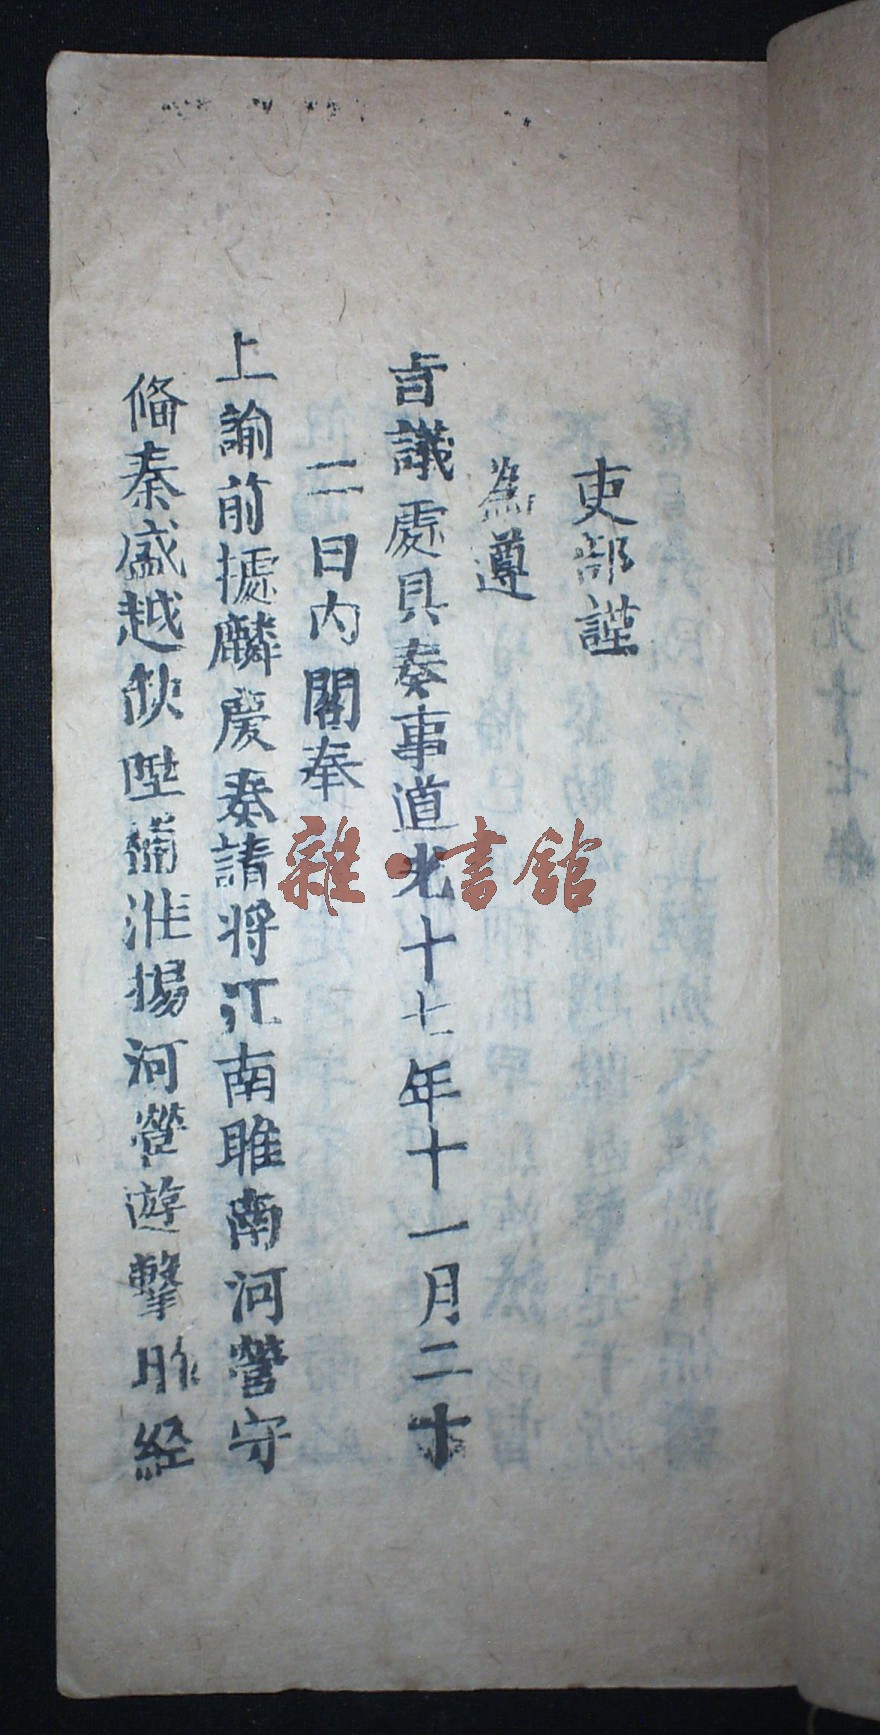 吏部謹
為遵
旨議處具奏事道光十七年十一月二十
二日內閣奉
上諭前據麟慶奏請將江南睢南河營守
俻秦盛越缺陞補淮揚河營遊擊昨經
雜·書館